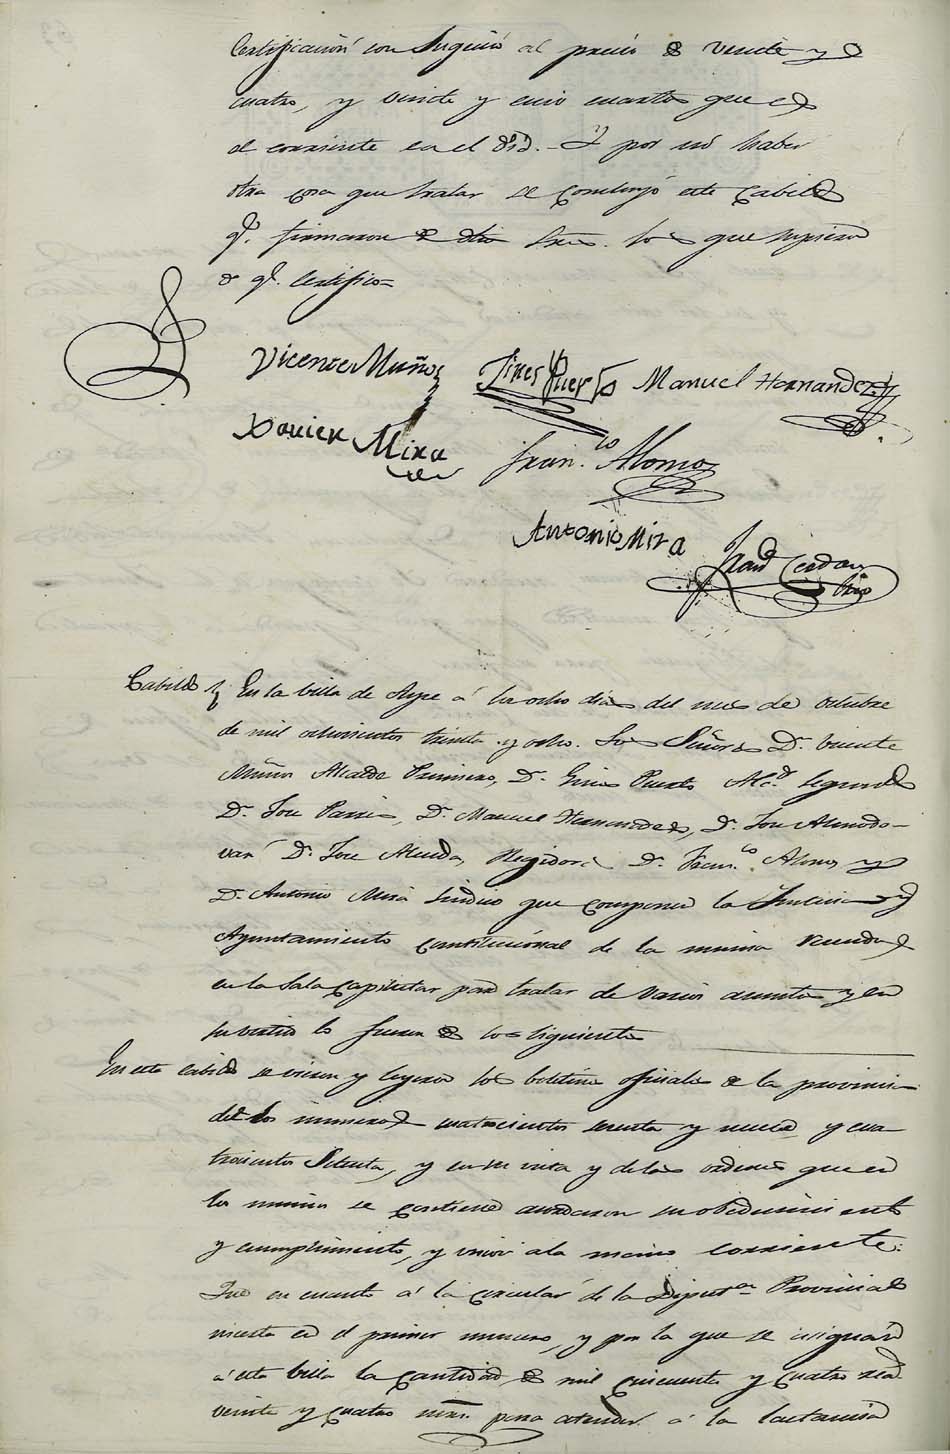 Certificacion con Sugecion al precio de veinte y
cuatro, y veinte y cinco cuartos que es
el corriente en el dia. Y por no haber
otra cosa que tratar se concluyó este Cabildo
q.e firmaron de dhos Sres. los que supieron
de q.e Certifico=
Vicente Muñoz Gines Puerto Manuel Hernandez
Xavier Mira Fran.co Alonso
Antonio Mira
Fran.co Cerdan
Srio
Cabildo En la villa de Aspe á los ocho dias del mes de Octubre
de mil ochocientos treinta y ocho. Los Señores D.n Vicente
Muñoz Alcalde Primero, D.n Gines Puerto Alc.de Segundo
D.n Jose Pavia, D.n Manuel Hernandez, D.n Jose Almodo-
var D.n Jose Alenda, Regidores D.n Fran.co Alonso y
D.n Antonio Mira Sindico que componen la Justicia y
Ayuntamiento Constitucional de la misma reunidos
en la Sala Capitular para tratar de varios asuntos y en
su vertud lo fueron de los Siguientes
En este Cabildo se vieron y leyeron los boletines oficiales de la provincia
de los numeros cuatrocientos sesenta y nueve y cua
trocientos Setenta, y en su vista y de las ordenes que en
los mismos se contienen acordaron su obedecimiento
y cumplimiento, y unir a la mano corriente:
Que en cuanto á la circular de la Diput.on Provincial
inserta en el primer numero, y por la que se asignan
á esta villa la cantidad de mil cincuenta y cuatro rea.s
veinte y cuatro mrs. para atender á la lactancia